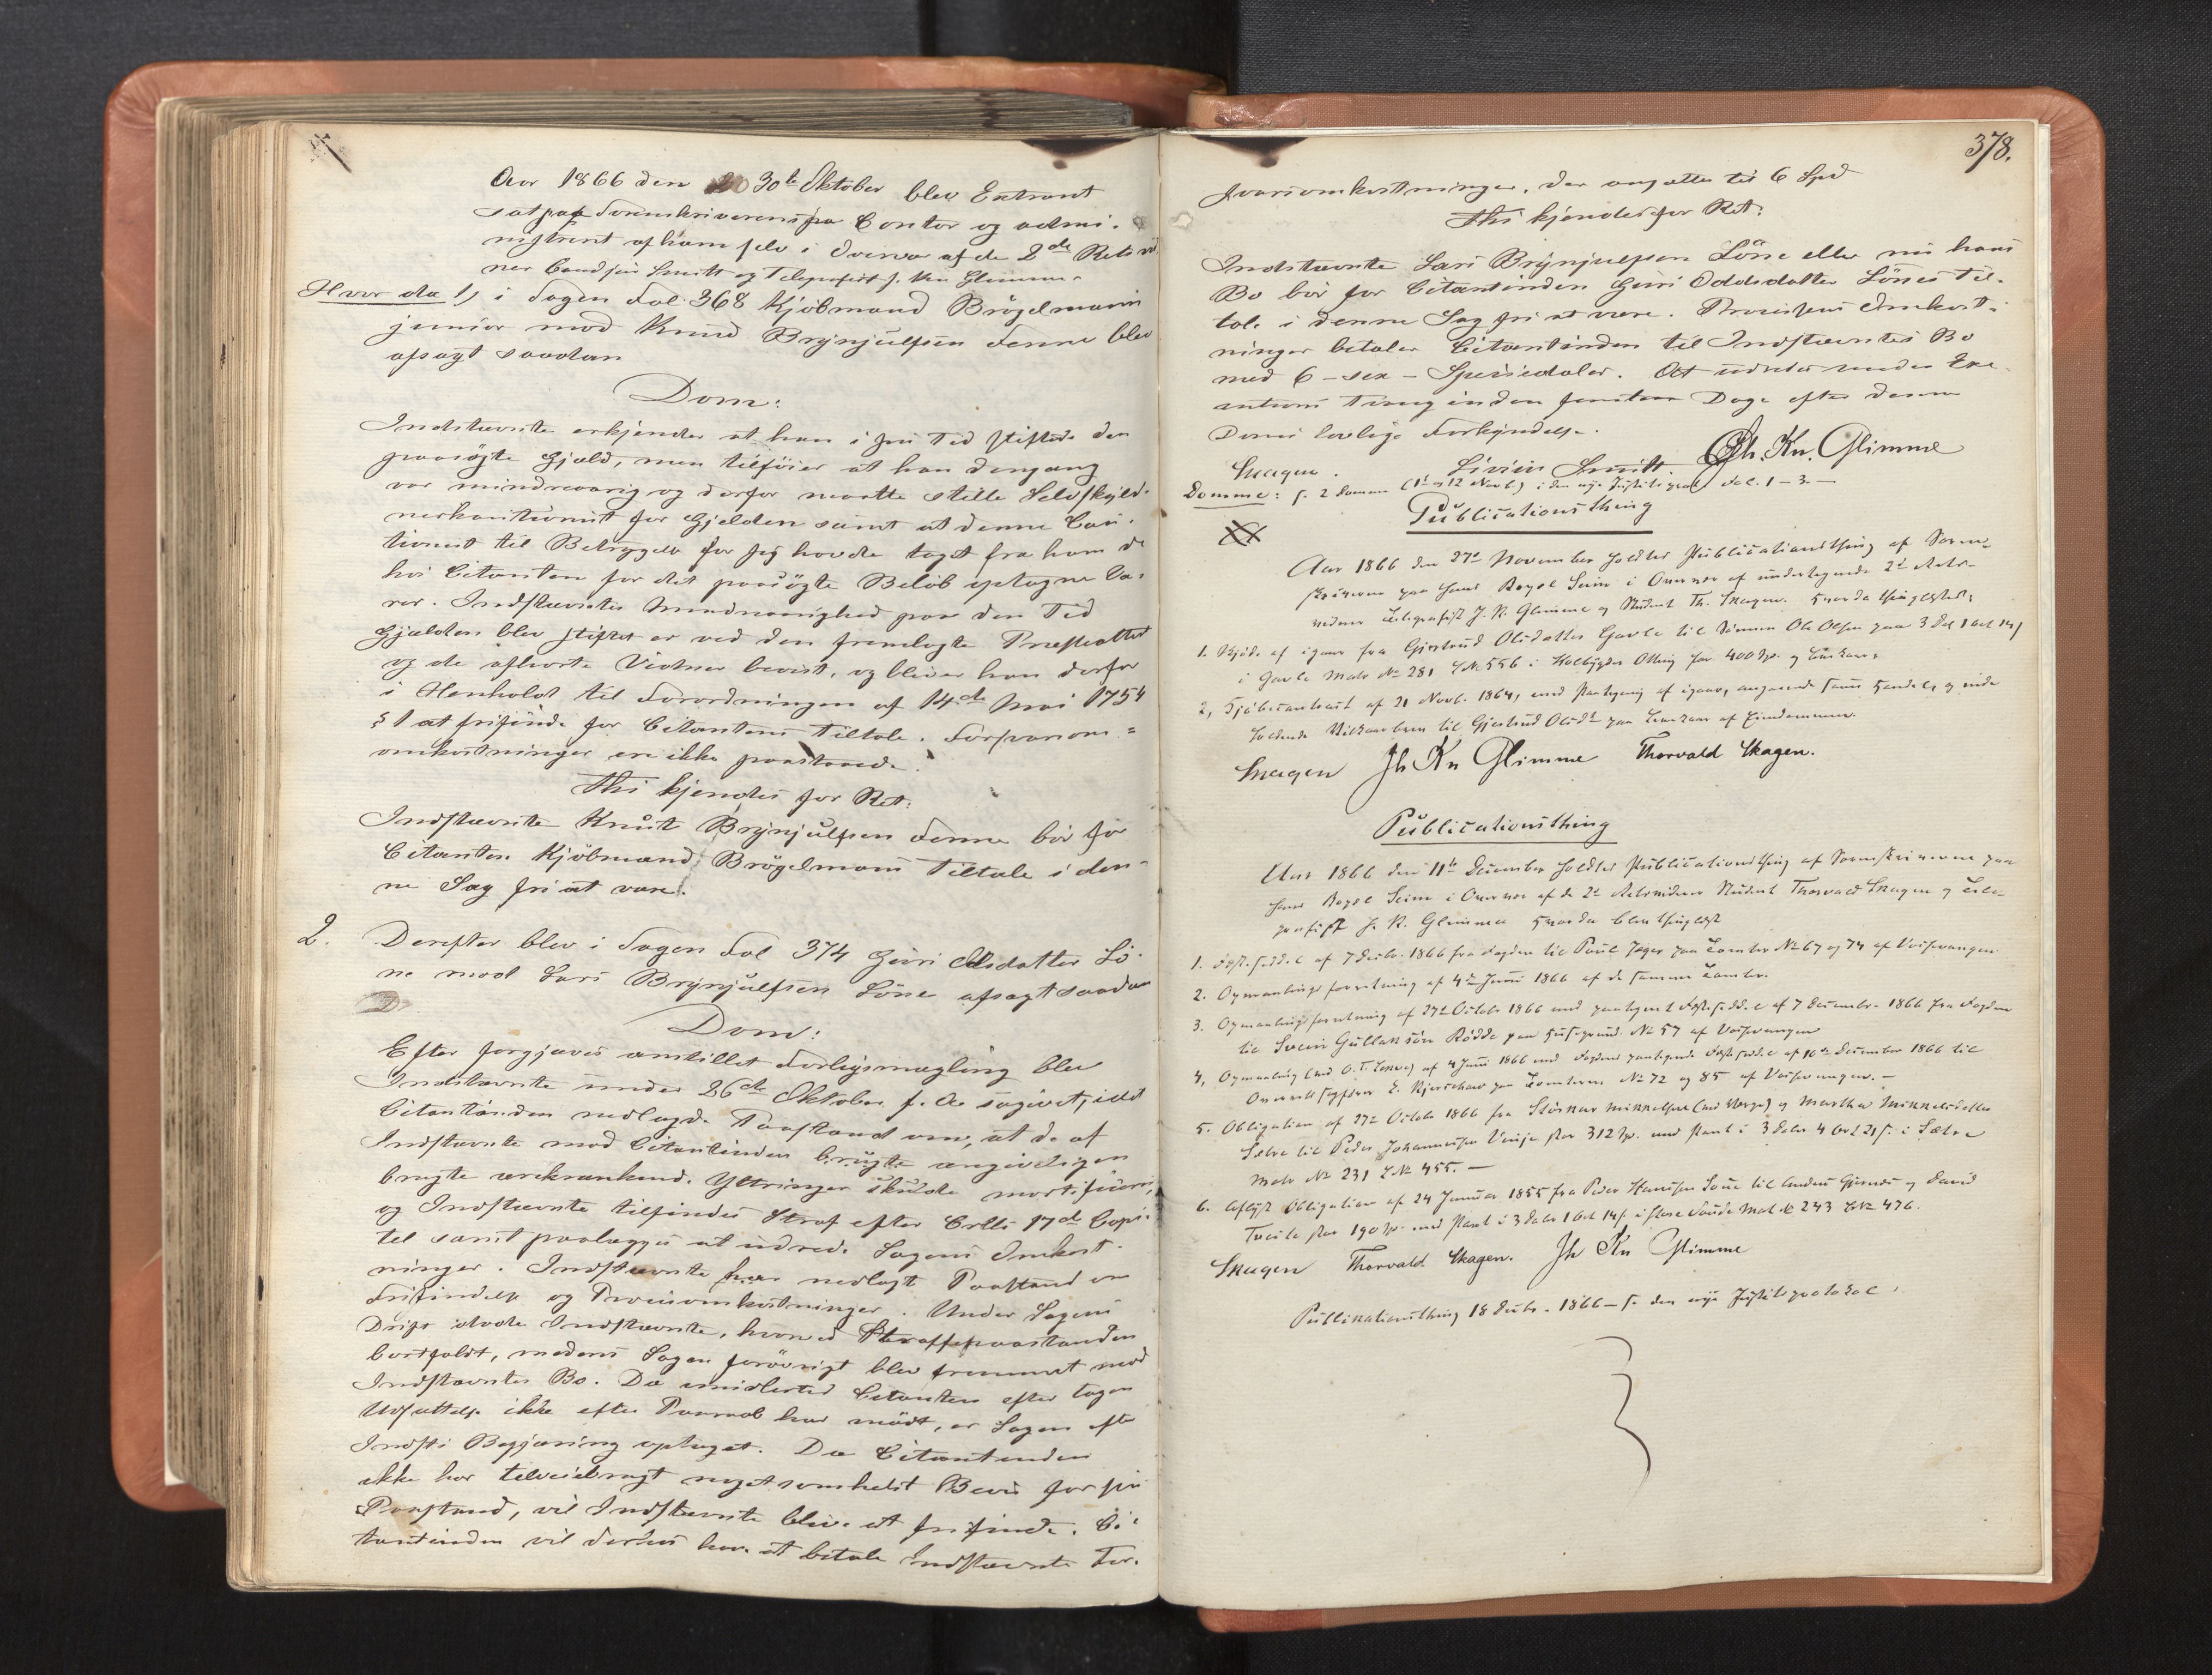 Aar 1866 den 30te Oktober blev Extraret
sat paa Sorenskriverens Contor og admi-
nistreret af ham selv i Overvær af de 2de Retsvid
ner Cand jur Smitt og Telegrafist J. Kn Glimme
Hvor da 1, i Sagen Fol. 368 Kjöbmand Brögelmann
junior mod Knud Brynjulfsen Fenne blev
afsagt saadan
Dom:
Indstævnte erkjender at han i sin Tid stiftede den
paasögte Gjæld, men tilföier at han dengang
var mindreaarig og derfor maatte stille Selvskyld-
nerkautionist for Gjelden samt at denne Cau-
tionist til Betryggelse for sig havde taget fra ham de
hos Citanten for det paasögte Belöb optagne Va-
rer. Indstævntes Mindreaarighed paa den Tid
Gjælden blev stiftet er ved den fremlagte Præsteattest
og de afhörte Vidner bevist, og bliver han derfor
i Henhold til Forordningen af 14de Mai 1754
§ 1 at frifinde for Citantens Tiltale. Forsvarsom-
omkostninger ere ikke paastaaede.
Thi kjendes for Ret:
Indstævnte Knut Brynjulfsen Fenne bör for
Citanten Kjöbmand Brögelmans Tiltale i den-
ne Sag fri at være.
2. Derefter blev i Sagen Fol 374 Guri Oddsdatter Lö-
ne mod Lars Brynjulfsen Löne afsagt saadan
Dom:
Efter forgjæves anstillet Forligsmægling blev
Indstævnte under 26de Oktober f. A. sagsövet, idet
Citantinden nedlagde Paastand om, at de af
Indstævnte mod Citantinden brugte angiveligen
brugte ærekrænkende Yttringer skulde mortificeres,
og Indstævnte tilfindes Straf efter Crlls 17de Capi-
tel samt paalægges at udrede Sagens Omkost-
ninger. Indstævnte har nedlagt Paastand om
Frifindelse og Procesomkostninger. Under Sagens
Drift döde Indstævnte, hvorved Straffepaastanden
bortfaldt, medens Sagen forövrigt blev fremmet mod
Indstævntes Bo. Da imidlertid Citanten efter tagen
Udsættelse ikke efter Paaraab har mödt, er Sagen efter
Indst's Begjæring optaget. Da Citantinden
ikke har tilveiebragt nogetsomhelst Bevis for sin
Paastand, vil Indstævnte blive at frifinde. Ci-
tantinden vil derhos have at betale Indstævnte For-
378.
svarsomkostninger, der ansættes til 6 Spd
Thi kjendes for Ret:
Indstævnte Lars Brynjulfsen Löne eller nu hans
Bo bör for Citantinden Guri Oddsdatter Lönes Til-
tale i denne Sag fri at være. Processens Omkost-
ninger betaler Citantinden til Indstævntes Bo
med 6 - sex - Speciedaler. At udredes under Exe-
cutions Tvang inden femten Dage efter denne
Doms lovlige Forkyndelse.
Skagen. Livius Smitt. Jh. Kn. Glimme
Domme: s. 2 Domme (1t og 12 Novb.) i den nye Justitsprot. Fol. 1-3.-
Publicationsthing
Aar 1866 den 27de November holdtes Publicationsthing af Soren-
skriveren paa hans Bopæl Seim i Overvær af undertegnede 2de Rets-
vidner Telegrafist J. K. Glimme og Student Th. Skagen. Hvorda thinglæstes:
1. Skjöde af igaar fra Gjertrud Olsdatter Gavle til Sönnen Ole Olsen paa 3 Dal 1 ort 14 s
i Gavle Matr No 281 LNo 556 i Holbygdens Otting for 400 Sp. og Livkaar.
2, Kjöbecontract af 21 Novb. 1864, med Paategning af igaar, angaaende samme Handel, og inde
holdende Vilkaarsbrev til Gjertrud Olsdr paa Livkaar af Eiendommen.
Skagen Jh Kn Glimme Thorvald Skagen.
Publicationsthing
Aar 1866 den 11te December holdtes Publicationsthing af Sorenskriveren paa
hans Bopæl Seim i Overvær af de 2de Retsvidner Student Thorvald Skagen og Tele-
grafist J. K. Glimme Hvorda blev thinglæst
1. Fæsteseddel af 7 Decbr. 1866 fra Fogden til Poul Jæger paa Tomter No 67 og 74 af Vossevangen
2. Opmaalingsforretning af 4de Juni 1866 af de samme Tomter.
3. Opmaalingsforretning af 27de Octobr 1866 med paategnet Fæsteseddel af 7 Decembr. 1866 fra Fogden
til Svein Gullaksön Rödde paa Husegrund No 57 af Vossevangen
4, Opmaaling af 4 Juni 1866 med Fogdens paategnede Fæsteseddel af 10de December 1866 til
E. Kjerschow paa Tomterne No 72 og 85 af Vossevangen. -
5. Obligation af 27de Octobr 1866 fra Störker Mikkelsen (med Værge) og Martha Mikkelsdatter
Sætre til Peder Johannessen Vinje stor 312 Sp. med Pant i 3 Daler 4 Ort 21 s. i Sætre
Matr No 231 LNo 455. -
6. Aflyst Obligation af 24 Januar 1855 fra Peder Hansen Soue til Anders Gjernes og David
Tveite stor 190 Sp. med Pant i 3 Daler 1 Ort 14 s. i store Saude Mat. No 243 LNo 476.
Skagen Thorvald Skagen. Jh Kn Glimme
Publikationsthing 18 Decbr. 1866 - s. den nye Justitsprotokol.